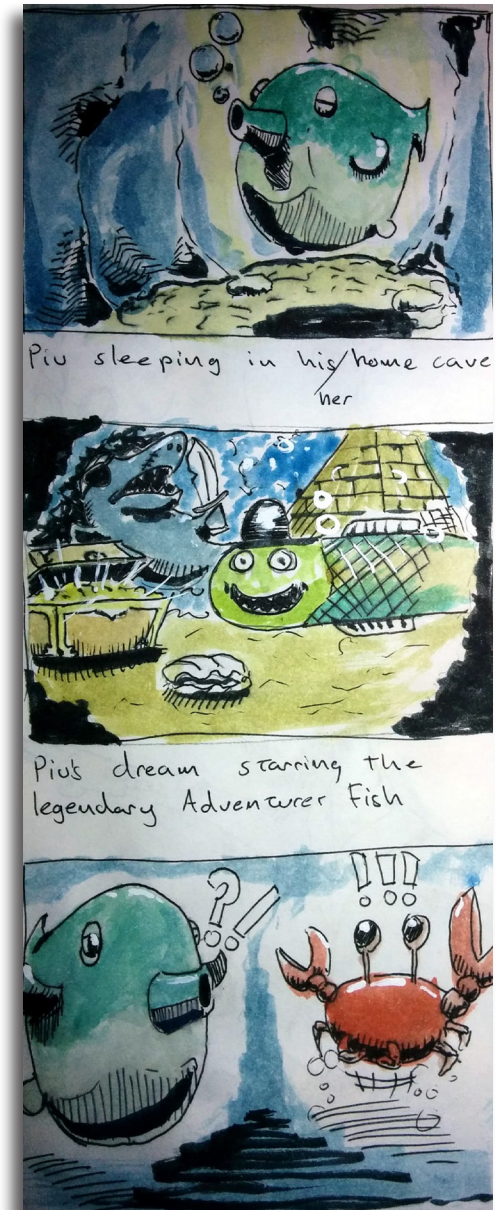 Piu sleeping in his/home cave
her
Piu's dream starring the
legendary Adventurer Fish
?!!
!!!